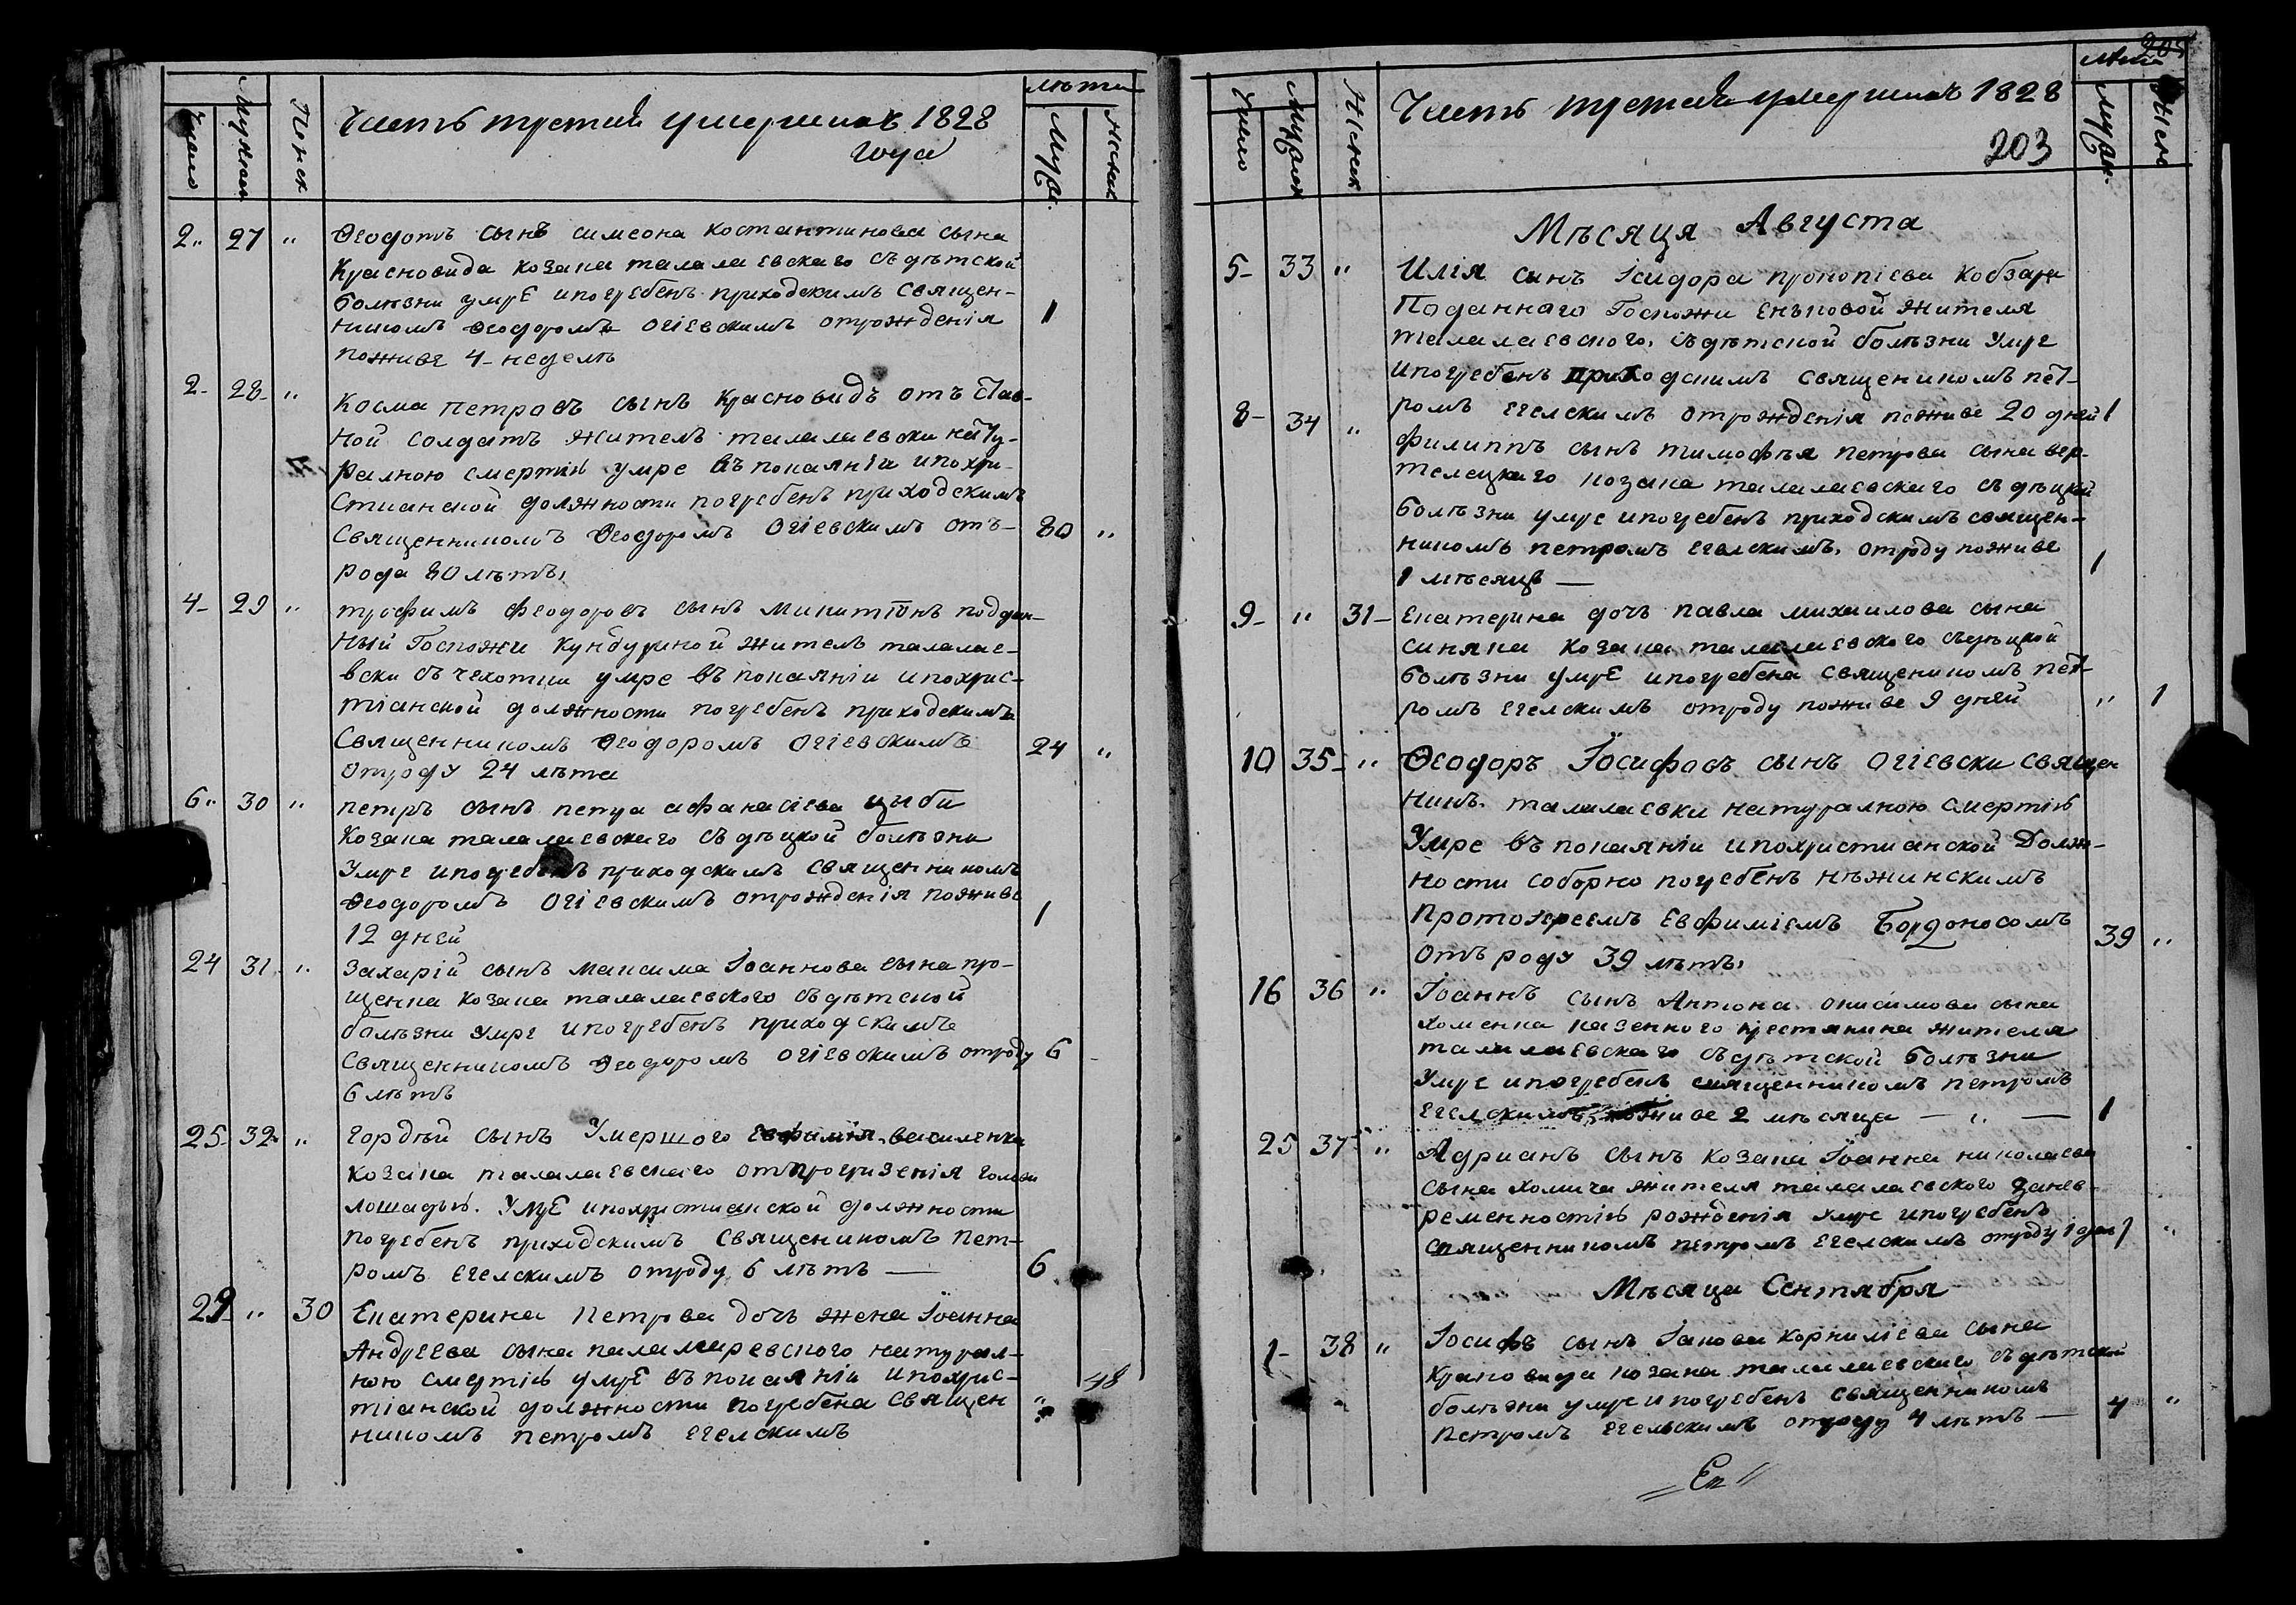 Число
Мужеск
Женск
Часть третия умершихъ 1828
года
лѣта
Муж.
Женск
2„ 27 „ Ѳеодотъ сынъ симеона костантинова сына
Красновида козака талалаевскаго съ дѣтской
болѣзни умре ипогребенъ приходскимъ священ-
никомъ Ѳеодоромъ Огіевскимъ отрожденія 1
поживе 4- неделѣ
2- 28- „ Косма петровъ сынъ красновидъ отъ став-
ной солдатъ жителъ талалаевски нату-
ралною смертію умре въ покаяніи ипохри-
стианской должности погребенъ приходскимъ
Священникомъ Ѳеодоромъ Огіевскимъ отъ- 80 „
рода 80 лѣтъ,
4- 29 „ трофимъ Феодоровъ сынъ Микитюнъ поддан-
ный Госпожи Кундуриной жителъ талалае-
вски съ чехотки умре въ покаяніи ипохрис-
тіанской должности погребенъ приходскимъ
Священникомъ Ѳеодоромъ Огіевскимъ 24 „
отроду 24 лѣта
6„ 30 „ петръ сынъ петра афанасіева цыби
Козака талалаевскаго съ дѣцкой болѣзни
Умре ипогребенъ приходскимъ священникомъ
Ѳеодоромъ Огіевскимъ отрожденія поживе 1
12 дней
24 31 „ Захарій сынъ максима Іоаннова сына про-
щенка козака талалаевского съ дѣтской
болѣзни умре ипогребенъ приходскимъ
Священникомъ Ѳеодоромъ Огіевскимъ отроду 6 -
6 лѣтъ
25- 32- „ Гордѣй сынъ Умершого Евфимія василенка
козака талалаевскаго отпрогризенія головы
лошадью. Умре ипохристианской должности
погребенъ приходскимъ Священикомъ Пет-
ромъ Егелскимъ отроду 6 лѣтъ — 6
29- „ 30 Екатерина Петрова дочъ жена Іоанна
Андреева сына паламаревского натурал-
ною смертію умре въ покаяніи ипохрис- 48
тіанской должности погребена Священ „
никомъ петромъ Егелскимъ
205
Число
Мужеск
Женск
Часть третия умершихъ 1828
203
лѣта
Муж.
Жен
Мѣсяця Августа
5- 33 „ Илія синъ Ісидора прокопіева кобзаря
Поданнаго Госпожи Енѣповой жителя
талалаевского. съдѣтской болѣзни Умре
ипогребенъ приходскимъ священикомъ пет-
ромъ Егелскимъ отрожденія поживе 20 дней 1
8- 34 „ филиппъ сынъ тимофѣя петрова сына вер-
телецкаго козака талалаевскаго съ дѣцкой
болѣзни умре ипогребенъ приходскимъ священ-
никомъ петромъ Егелскимъ. отроду поживе
1 мѣсяцъ — 1
9- „ 31- Екатерина дочъ павла михаилова сына
синяка козака талалаевского съдѣцкой
болѣзни умре ипогребена священикомъ пет-
ромъ Егелскимъ отроду поживе 9 дней „ 1
10 35- „ Ѳеодоръ Іосифовъ сынъ Огіевски священ
никъ. талалаевки натуралною смертію
Умре въ покаяніи ипохристианской Долж-
ности соборно погребенъ нѣжинскимъ
Протоіереемъ Евфиміемъ Бордоносомъ
Отъ роду 39 лѣтъ, 39 „
16 36 „ Іоаннъ сынъ Антона онисимова сына
хоменка казенного крестянина жителя
талалаевскаго съдѣтской болѣзни
Умре ипогребенъ священникомъ петромъ
Егелскимъ, поживе 2 мѣсяца — „ — 1
25 37- „ Адрианъ сынъ козака Іоанна николаева
сына хомича жителя талалаевского занев-
ременностію рожденія умре ипогребенъ
Священникомъ петромъ Егелскимъ отроду 1 день 1 „
Мѣсяца Сентября
1- 38 „ Іосифъ сынъ Іакова корниліева сына
крановида козака талалаевскаго съ дѣтской
болѣзни умре ипогребенъ священникомъ
Петромъ Егельскимъ отроду 4 лѣтъ — 4 „